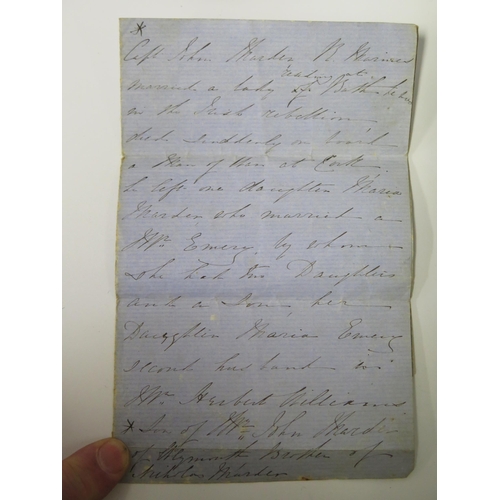 *
Capt John Harden R. Marines
married a lady of Bath
in the Irish rebellion
died suddenly on board
a Man of War at Cork
he left one daughter Maria
Harden who married a
Mr. Emery, by whom
she had two Daughters
and a Son, her
Daughter Maria Emery
second husband is
Mr Herbert Williams
* Son of Mr John Harden
of Plymouth Brother of
Nicholas Harden